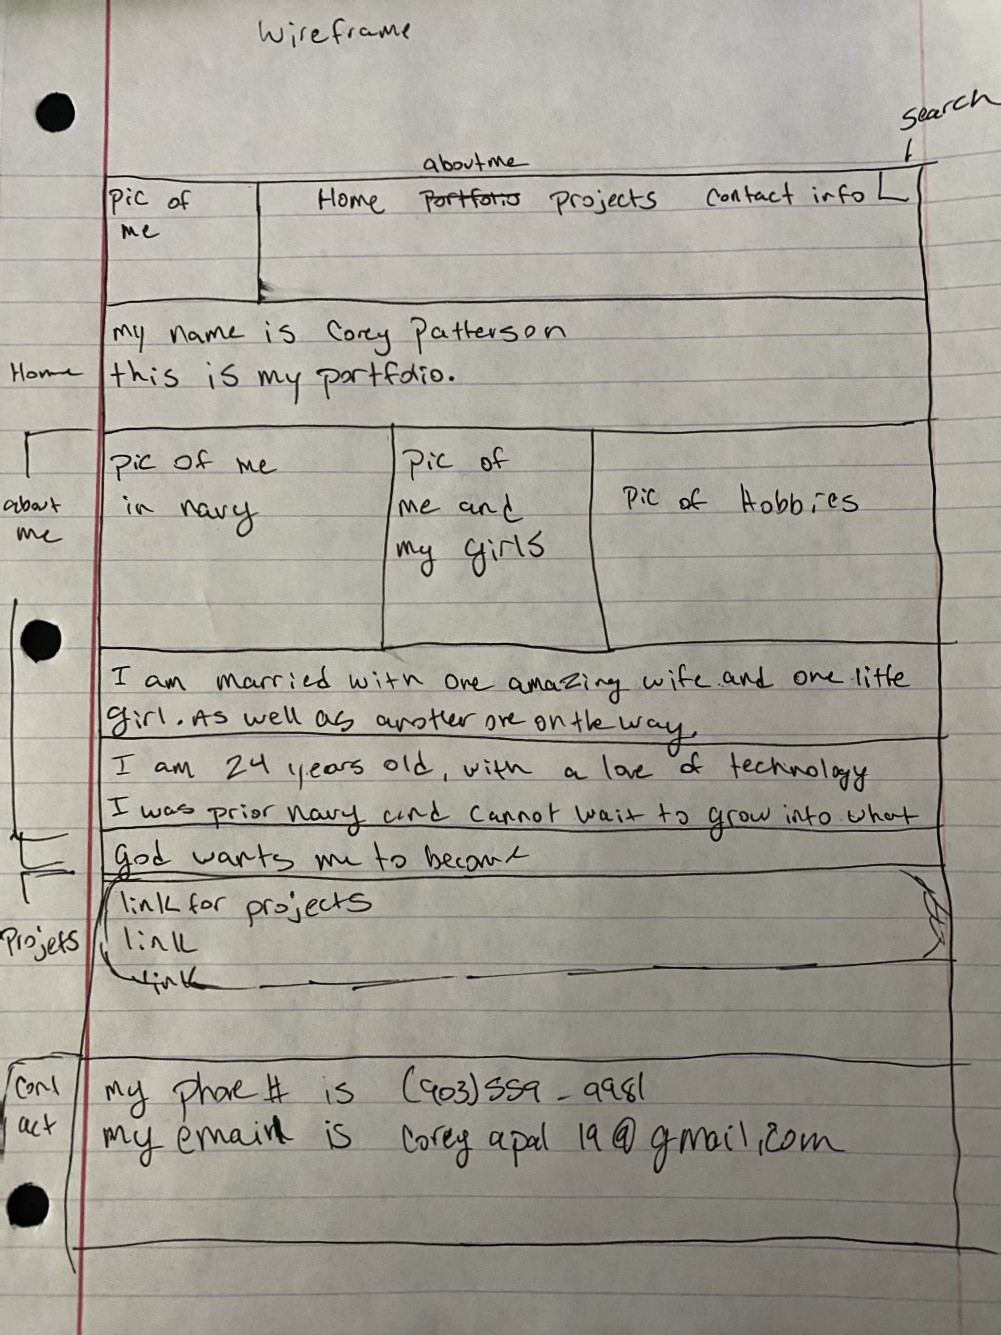 Wireframe
search
about me
pic of me
Home Portfolio projects contact info
my name is Corey Patterson
Home
this is my portfolio.
about me
pic of me
in navy
pic of
me and
my girls
pic of Hobbies
I am married with one amazing wife and one little
girl. As well as another one on the way.
I am 24 years old, with a love of technology
I was prior navy and cannot wait to grow into what
god wants me to become
Projets
link for projects
link
link
Cont
act
my phone # is (903)559-9981
my email is coreyapal19@gmail.com